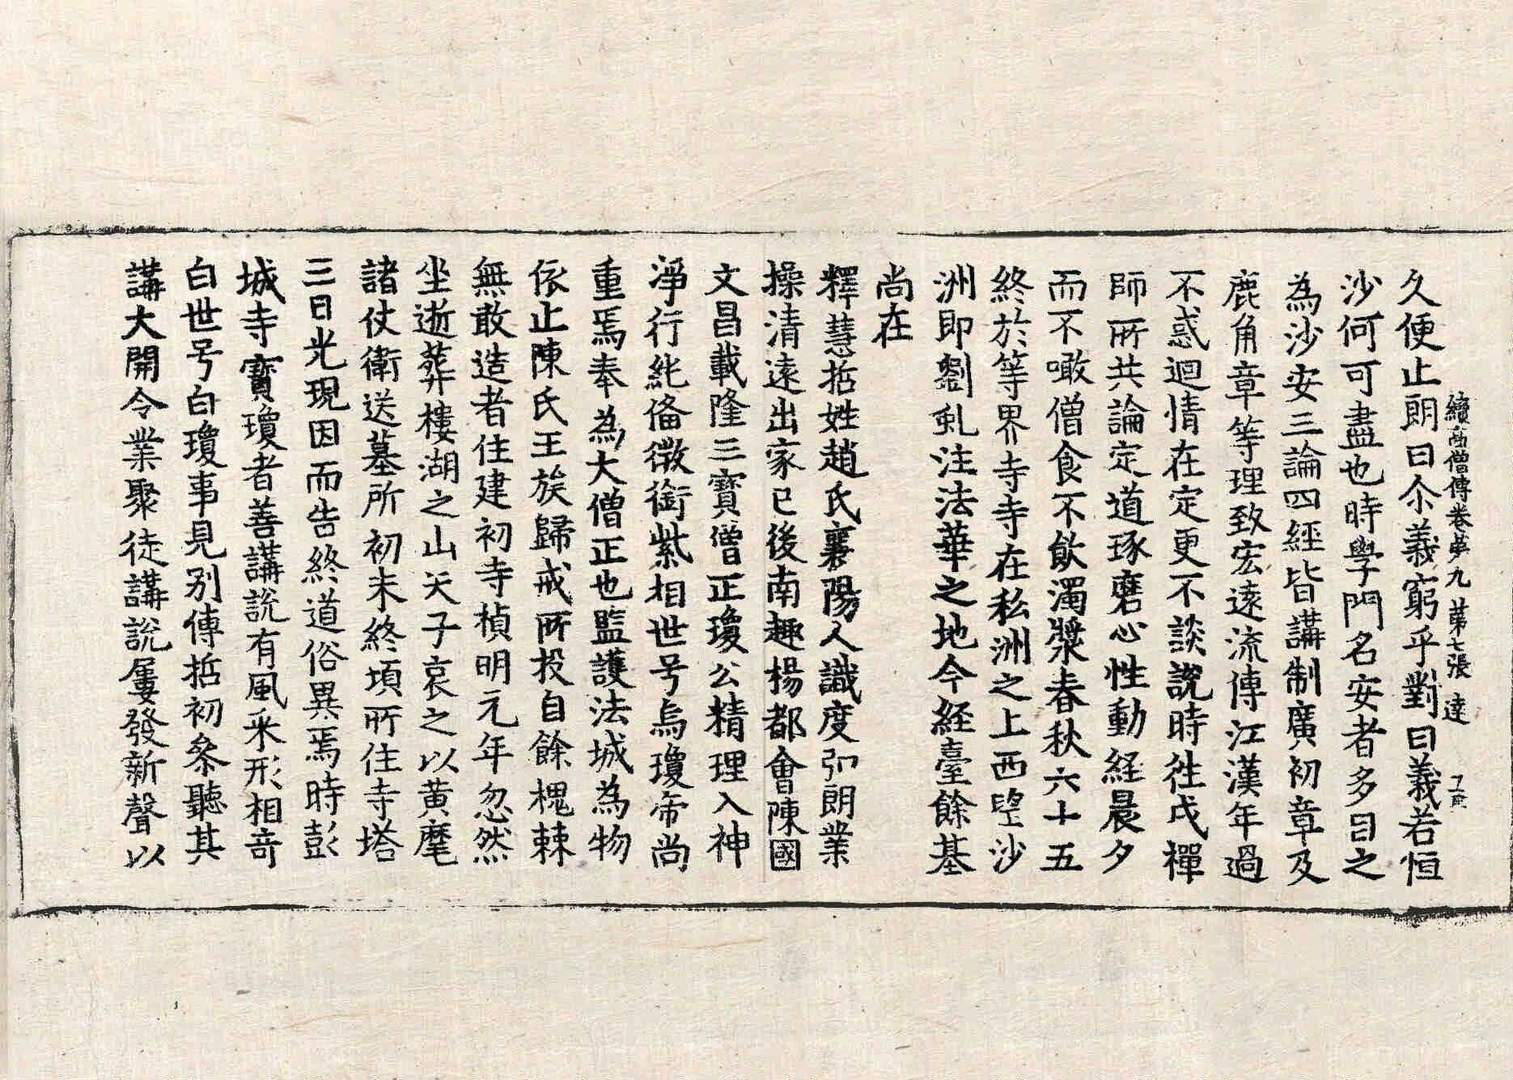 久便止朗曰尒義窮乎對曰義若恒
續高僧傳卷第九 第七張 達
沙何可盡也時學門名安者多目之
為沙安三論四經皆講制廣初章及
鹿角章等理致宏遠流傳江漢年過
不惑迴情在定更不談說時往戍禪
師所共論定道琢磨心性動經晨夕
而不噉僧食不飲濁漿春秋六十五
終於等界寺寺在私洲之上西望沙
洲即劉虬注法華之地今經臺餘基
尚在
釋慧哲姓趙氏襄陽人識度弘朗業
操清遠出家已後南趣楊都會陳國
文昌載隆三寶僧正瓊公精理入神
淨行純俻徵銜紫相世号烏瓊帝尚
重焉奉為大僧正也監護法城為物
依止陳氏王族歸戒所投自餘槐棘
無敢造者住建初寺禎明元年忽然
坐逝葬樓湖之山天子哀之以黃麾
諸仗衛送墓所初未終頃所住寺塔
三日光現因而告終道俗異焉時彭
城寺寶瓊者善講說有風采形相竒
白世号白瓊事見別傳哲初叅聽其
講大開令業聚徒講說屢發新聲以